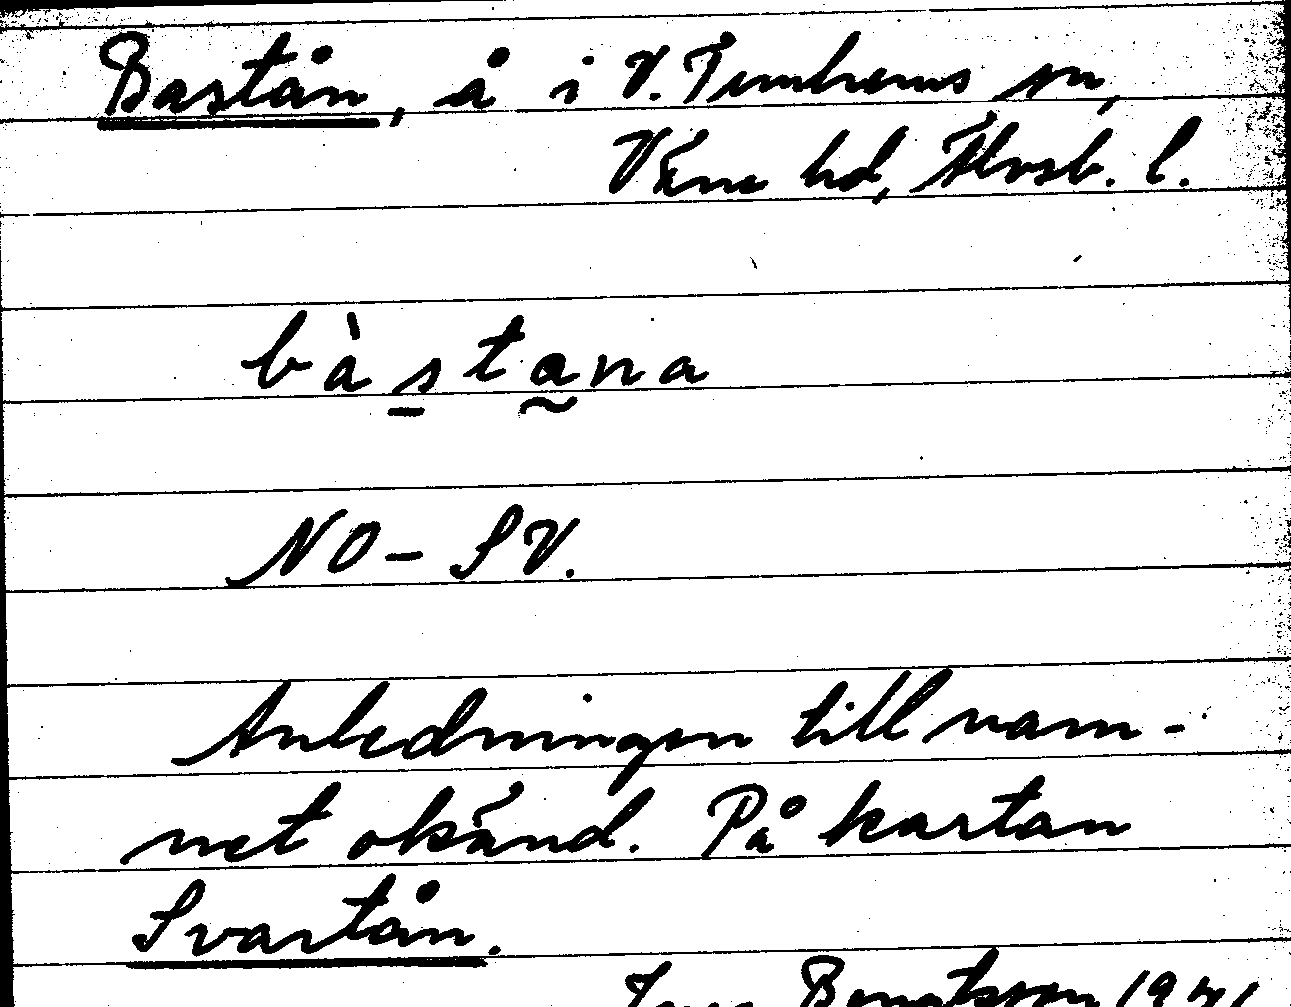 Bastån, å i V. Tunhems sn,
Väne hd, Älvsb. l.
bàstana
NO - SV.
Anledningen till nam-
net okänd. På kartan
Svartån.
Bengtsson 1941